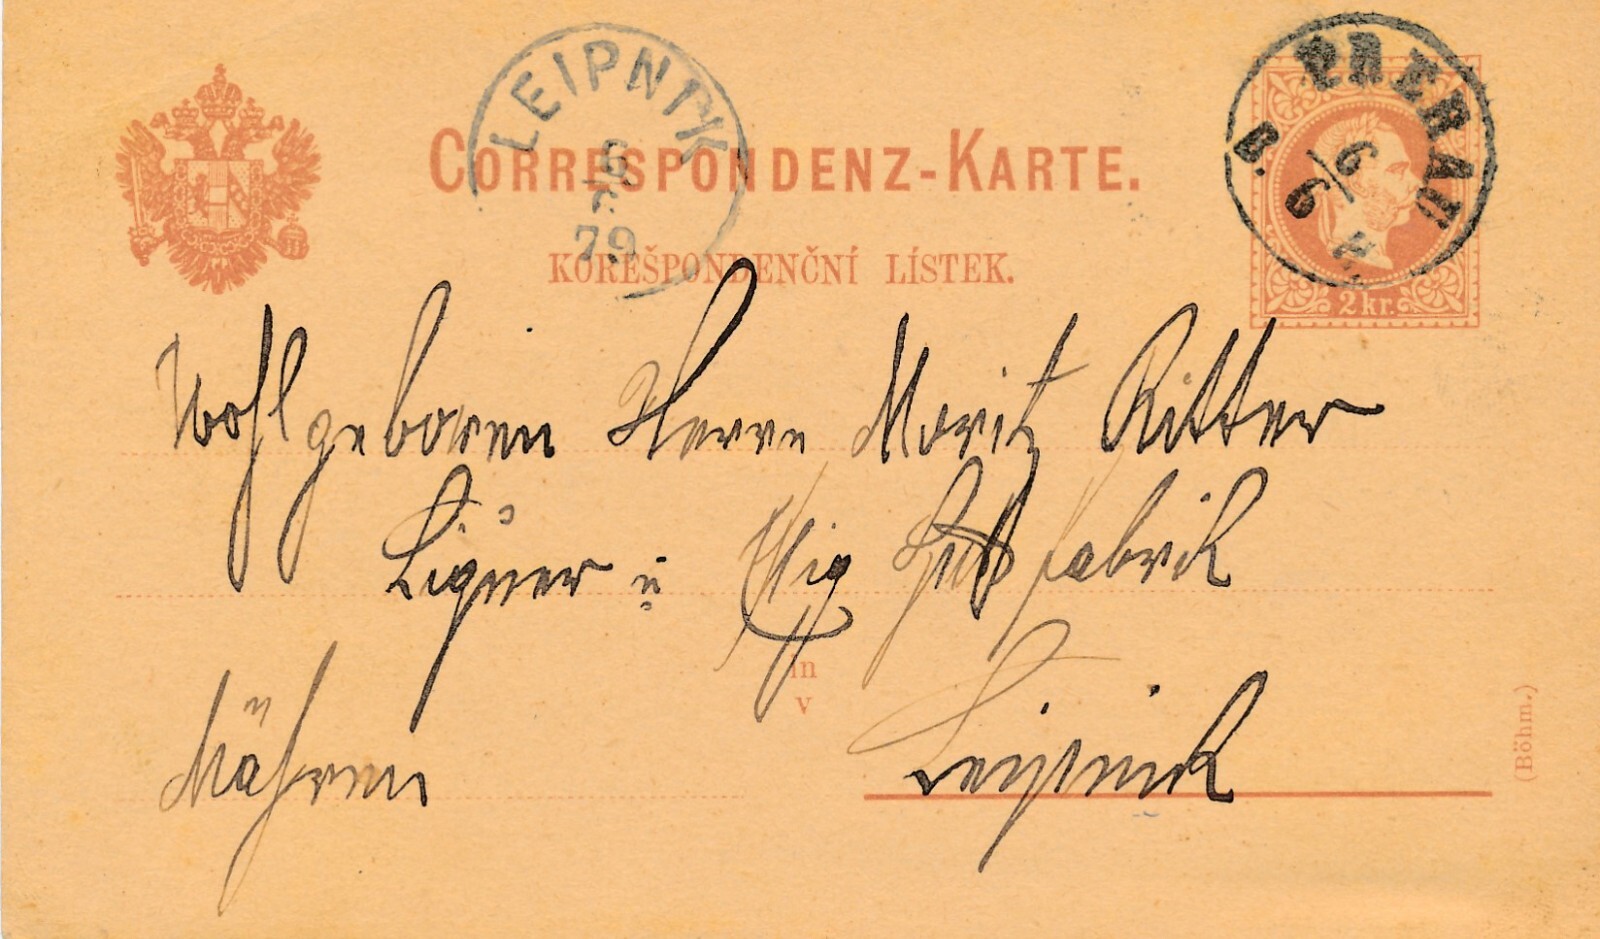 LEIPNIK
6
79
PRERAU
B. H.
6/6
CORRESPONDENZ-KARTE.
KOREŠPONDENČNÍ LÍSTEK.
2 kr.
Wohlgeboren Herrn Moritz Ritter
Liquer u Essig fabrik
in
v
Mähren Leipnik
(Böhm.)